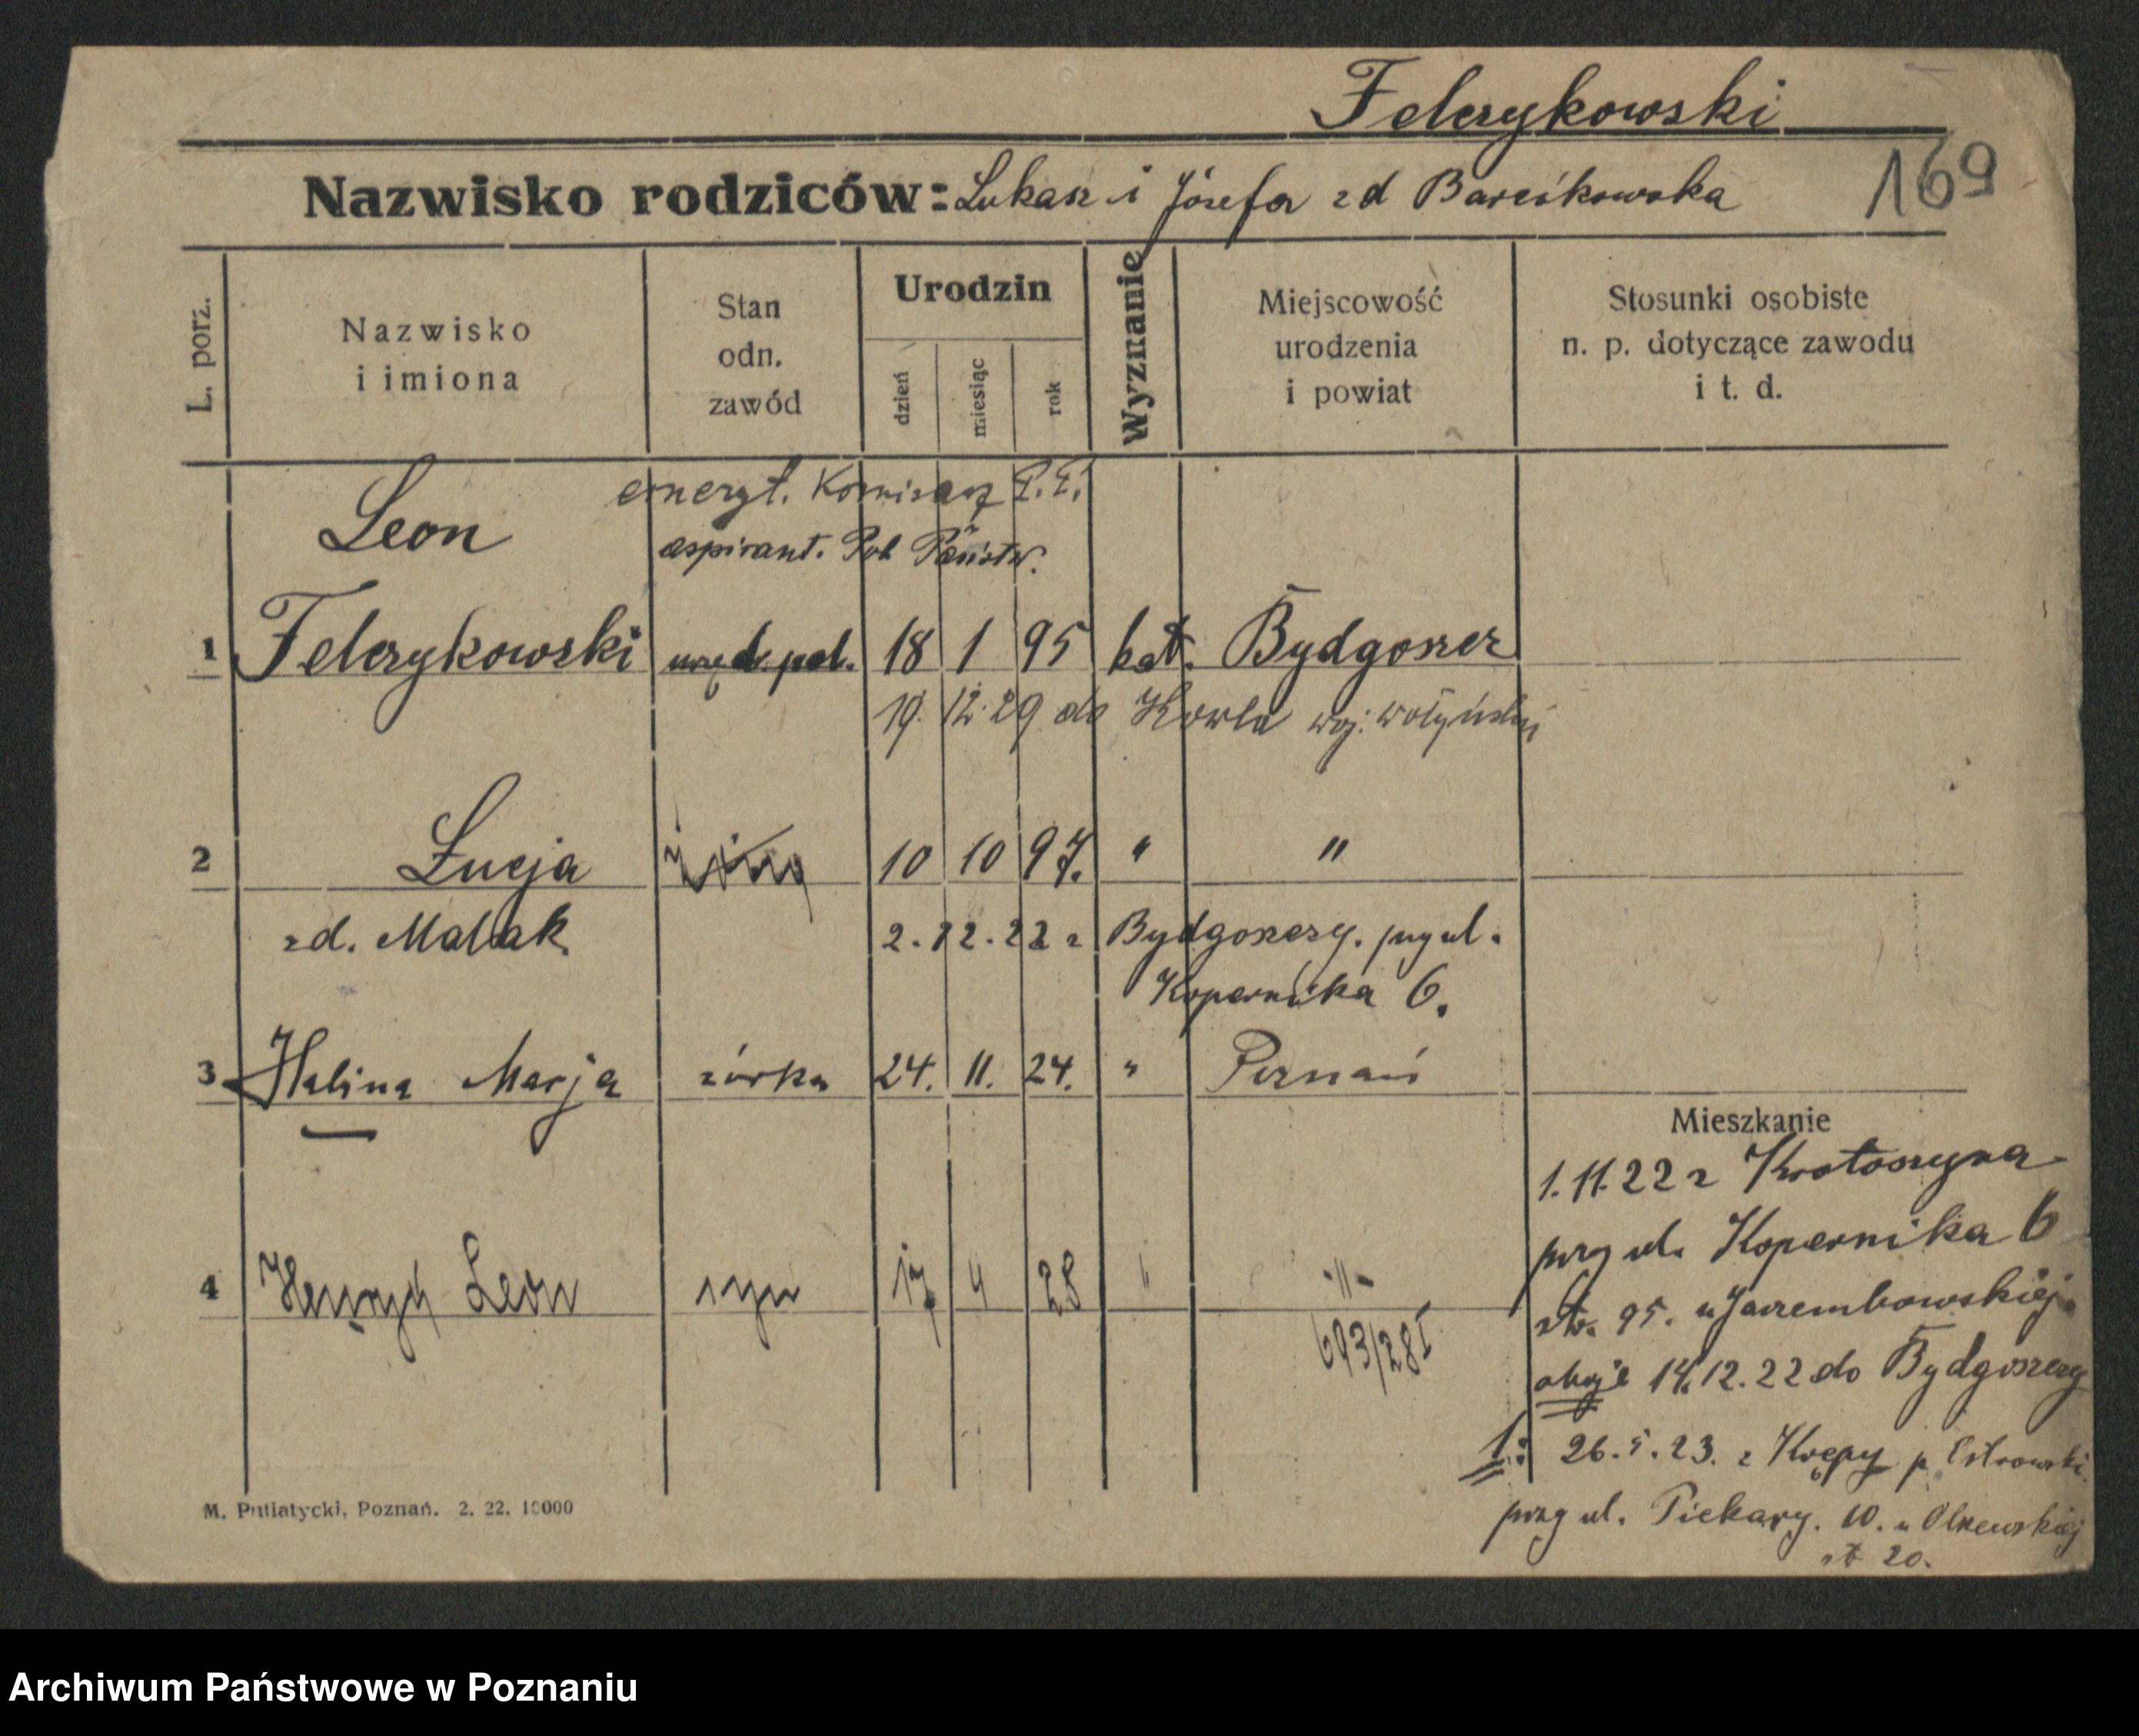 Felczykowski
Nazwisko rodziców: Łukasz i Józefa zd Barcikowska
169
L. porz.
Nazwisko
i imiona
Stan
odn.
zawód
Urodzin
dzień
miesiąc
rok
Wyznanie
Miejscowość
urodzenia
i powiat
Stosunki osobiste
n. p. dotyczące zawodu
i t. d.
emeryt. Komisarz P.P.
Leon
aspirant. Pol Państw.
1 Felczykowski urzęd. pol. 18 1 95 kat. Bydgoszcz
19. 12. 29. do Kowla woj. wołyński
2 Łucja żona 10 10 97. " "
zd. Malak 2. 12. 22 z Bydgoszczy. przy ul.
Kopernika 6.
3 Halina Marja córka 24. 11. 24. " Poznań
Mieszkanie
1. 11. 22 z Krotoszyna
przy ul. Kopernika 6
4 Henryk Leon syn 17 4 28 " -"-
693/28 I
str. 95. u Jarembowskiej.
oboje 14. 12. 22 do Bydgoszczy
1: 26. 5. 23. z Krępy p Ostrowski.
przy ul. Piekary. 10. u Olszewskiej
st 20.
M. Putiatycki, Poznań. 2. 22. 10000
Archiwum Państwowe w Poznaniu